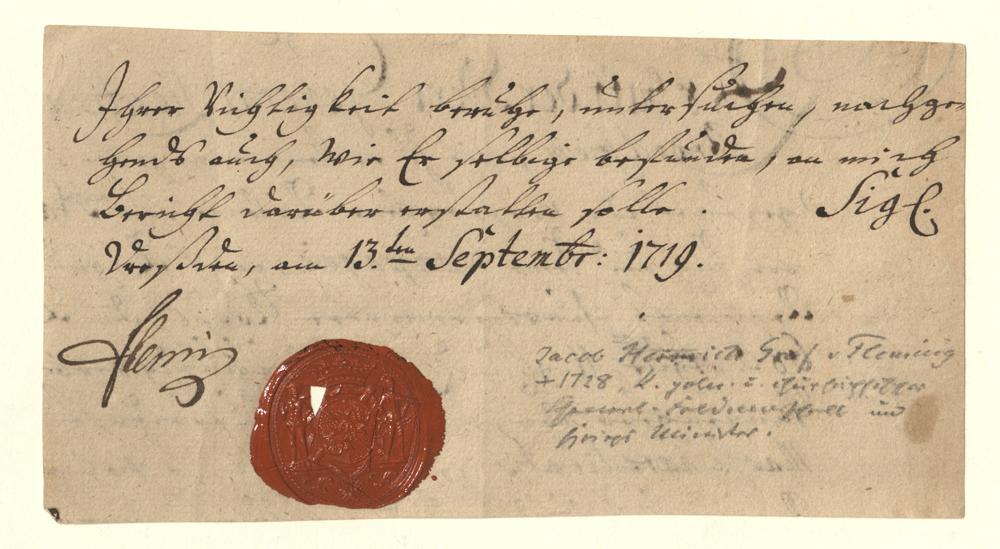 Ihrer Richtigkeit beruhe, untersuchen, nachge-
hends auch, wie Er selbige befunden, an mich
Bericht darüber erstatten solle. Sigl.
Dreßden, am 13.ten Septembr: 1719.
Flemin
Jacob Heinrich Graf v Fleming
+ 1728, K. poln. u. churfürstlicher
General-Feldmarschall und
Kriegs Minister.